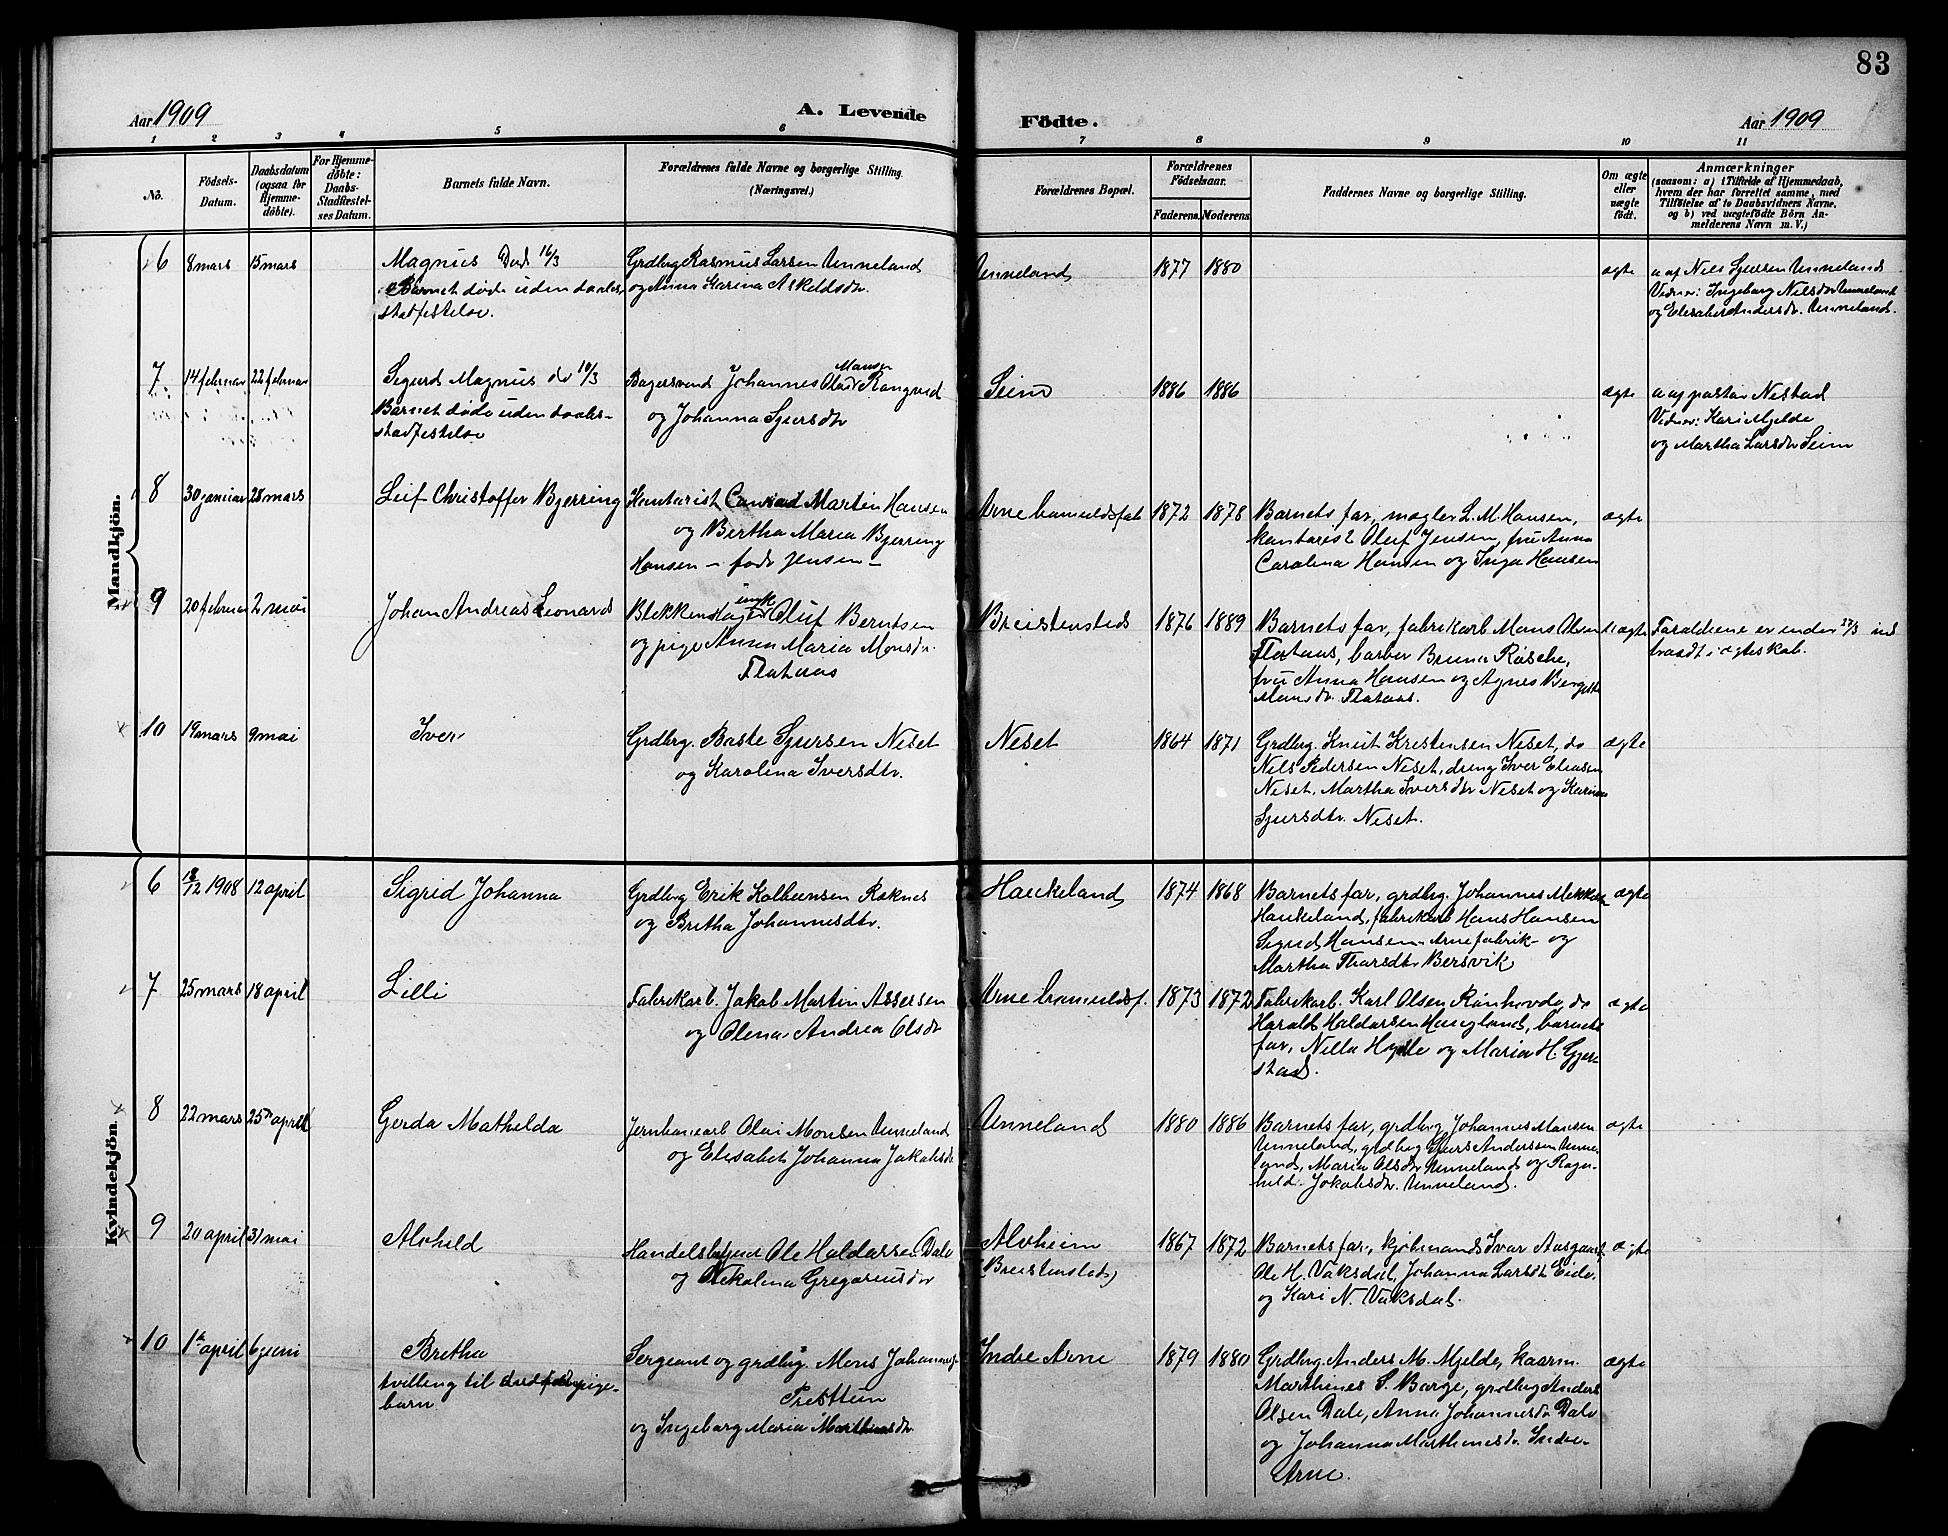 83
Aar 1909
A. Levende Födte.
Aar 1909
1 2 3 4 5 6 7 8 9 10 11
No.
Födsels-
Datum.
Daabsdatum
(ogsaa for
Hjemme-
döbte).
For Hjemme-
döbte:
Daabs-
Stadfæstel-
ses Datum.
Barnets fulde Navn.
Forældrenes fulde Navne og borgerlige Stilling.
(Næringsvei.)
Forældrenes Bopæl.
Forældrenes
Födselsaar.
Faderens.
Moderens
Faddernes Navne og borgerlige Stilling.
Om ægte
eller
uægte
födt.
Anmærkninger
(saasom: a) i Tilfælde af Hjemmedaab,
hvem der har forrettet samme, med
Tilföielse af to Daabsvidners Navne,
og b) ved uægtefödte Börn An-
melderens Navn m. V.)
Mandkjön.
6
8 mars
15 mars
Magnus Död 16/3
Barnet døde uden daabs-
stadfestelse.
Grdbrg Rasmus Larsen Unneland
og Anna Karina Askeldsdr.
Unneland
1877
1880
ægte
a af Niels Sjursen Unneland
Vidner: Ingeborg Nilsdr Unneland
og Elisabet Andersdr. Unneland.
7
14 februar
22 februar
Sigurd Magnus do 10/3
Barnet døde uden daabs-
stadfestelse
Monsen
Bagersvend Johannes Olai Rongved
og Johanna Sjursdtr
Seim
1886
1886
ægte
a af pastor Nestad
Vidner: Kari Mjelde
og Martha Larsdtr Seim
8
30 januar
28 mars
Leif Christoffer Bjerring
Kontorist Conrad Martin Hansen
og Bertha Maria Bjerring
Hansen – født Jensen –
Arne bomuldsfab
1872
1878
Barnets far, mægler L. M. Hansen,
kontorist Oluf Jensen, fru Anna
Carolina Hansen og Inga Hansen
ægte
9
20 februar
2 mai
Johan Andreas Leonard
ungk
Blikkenslager Oluf Berntsen
og pige Anna Maria Monsdr.
Flataas
Breistensteds
1876
1889
Barnets far, fabrikarb Mons Olsen
Flataas, barber Bruno Rasche,
fru Anna Hansen og Agnes Bergitte
Monsdr. Flataas.
uægte
Forældrene er under 27/3 ind
traadt i ægteskab.
10
19 mars
9 mai
Iver
Grdbrg. Baste Sjursen Neset
og Karolina Iversdtr.
Neset
1864
1871
Grdbrg. Knut Kristensen Neset, do
Nils Pedersen Neset, dreng Iver Eliasen
Neset, Martha Iversdtr Neset og Karina
Sjursdtr. Neset.
ægte
Kvindekjön.
6
18/12 1908
12 april
Sigrid Johanna
Grdbrg Erik Kolbeinsen Roknes
og Bretha Johannesdtr.
Haukeland
1874
1868
Barnets far, grdbrg. Johannes Mikkelsen
Haukeland, fabrikarb Hans Hansen
Sigrid Hansen – Arne fabrik – og
Martha Thorsdtr Bersvik
ægte
7
25 mars
18 april
Lilli
Fabrikarb. Jakob Martin Assersen
og Olena Andrea Olsdr
Arne bomuldsf.
1873
1872
Fabrikarb. Karl Olsen Rønhovde, do
Harald Haldorsen Haugland, barnets
far, Nilla Hoyle og Maria H. Gjer-
stad.
ægte
8
22 mars
25de april
Gerda Mathilda
Jernbanearb Olai Monsen Unneland
og Elisabet Johanna Jakobsdr
Unneland
1880
1886
Barnets far, grdbrg Johannes Monsen
Unneland, grdbrg Sjurs Anderssen Unne-
land, Maria Olsdr Unneland og Ragn-
hild Jokobsdr. Unneland.
ægte
9
20 april
31 mai
Alvhild
Handelsbetjent Ole Haldorsen Dale
og Nikolina Gregoriusdr
Alvheim
(Breistensteds)
1867
1872
Barnets far, kjøbmand Ivar Aasgaard,
Ole H. Vaksdal, Johanna Larsdtr Eide
og Kari N. Vaksdal.
ægte
10
1ste april
6 juni
Bretha
tvilling til dødfødt pige-
barn
Sergeant og grdbrg. Mons Johannes-
Presttun
og Ingeborg Maria Marthinsdr
Indre Arne
1879
1880
Grdbrg. Anders M. Mjelde, skarm.
Marthines S. Borge, grdbrg Anders
Olsen Dale, Anna Johannesdr Dale
og Johanna Marthinesdr. Indre-
Arne.
ægte